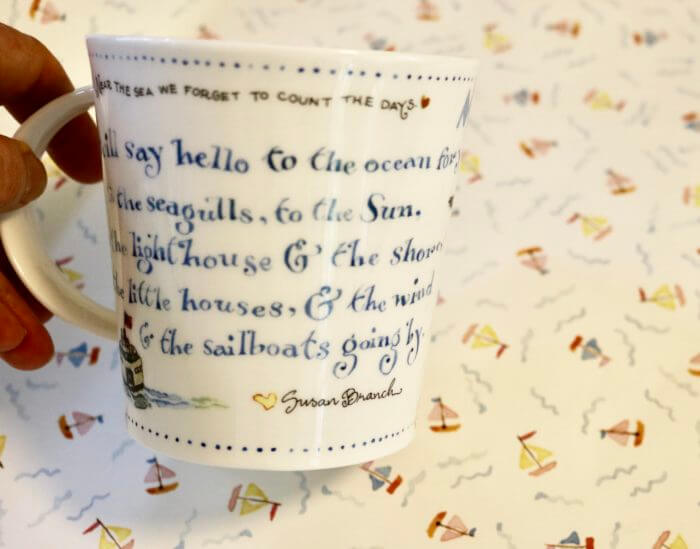 NEAR THE SEA WE FORGET TO COUNT THE DAYS
say hello to the ocean for
the seagulls, to the Sun.
the lighthouse & the shore
little houses, & the wind
& the sailboats going by.
Susan Branch